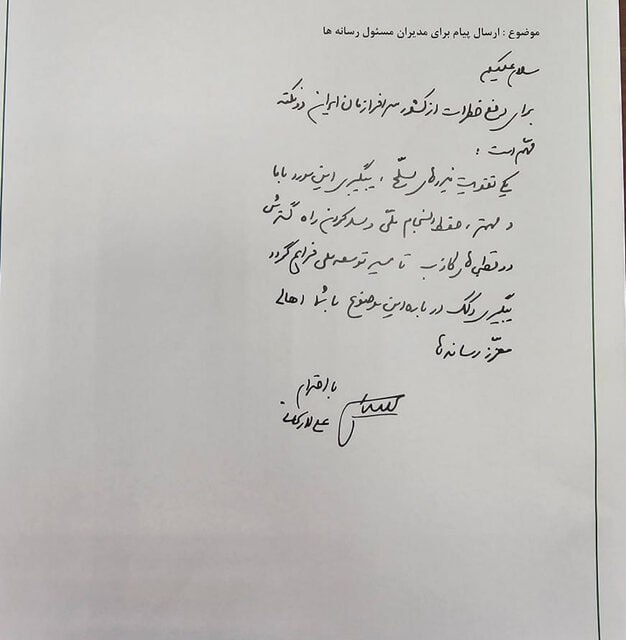 موضوع : ارسال پیام برای مدیران مسئول رسانه ها
سلام علیکم
برای رفع خطرات از کشور سرافرازمان ایران دو نکته
مهم است :
یکی تقویت نیروهای مسلّح ، پیگیری این مورد با ما
و مهمتر ، حفظ انسجام ملّی و سد کردن راه گسترش
دو قطبی‌های کاذب تا مسیر توسعه ملی فراهم گردد
پیگیری و کمک در باره این موضوع با شما اهالی
معزّز رسانه‌ها
با احترام
علی لاریجانی